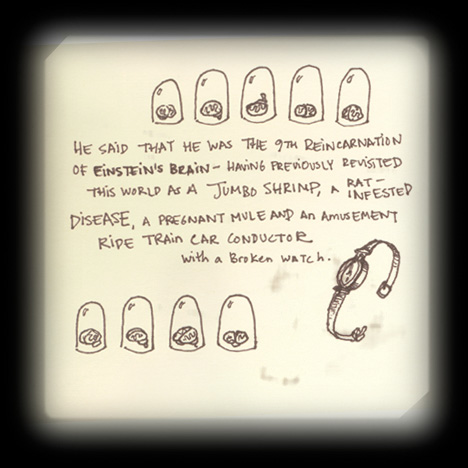 HE SAID THAT HE WAS THE 9TH REINCARNATION
OF EINSTEIN'S BRAIN - HAVING PREVIOUSLY REVISITED
THIS WORLD AS A JUMBO SHRIMP, A RAT-INFESTED
DISEASE, A PREGNANT MULE AND AN AMUSEMENT
RIDE TRAIN CAR CONDUCTOR
with a Broken watch.